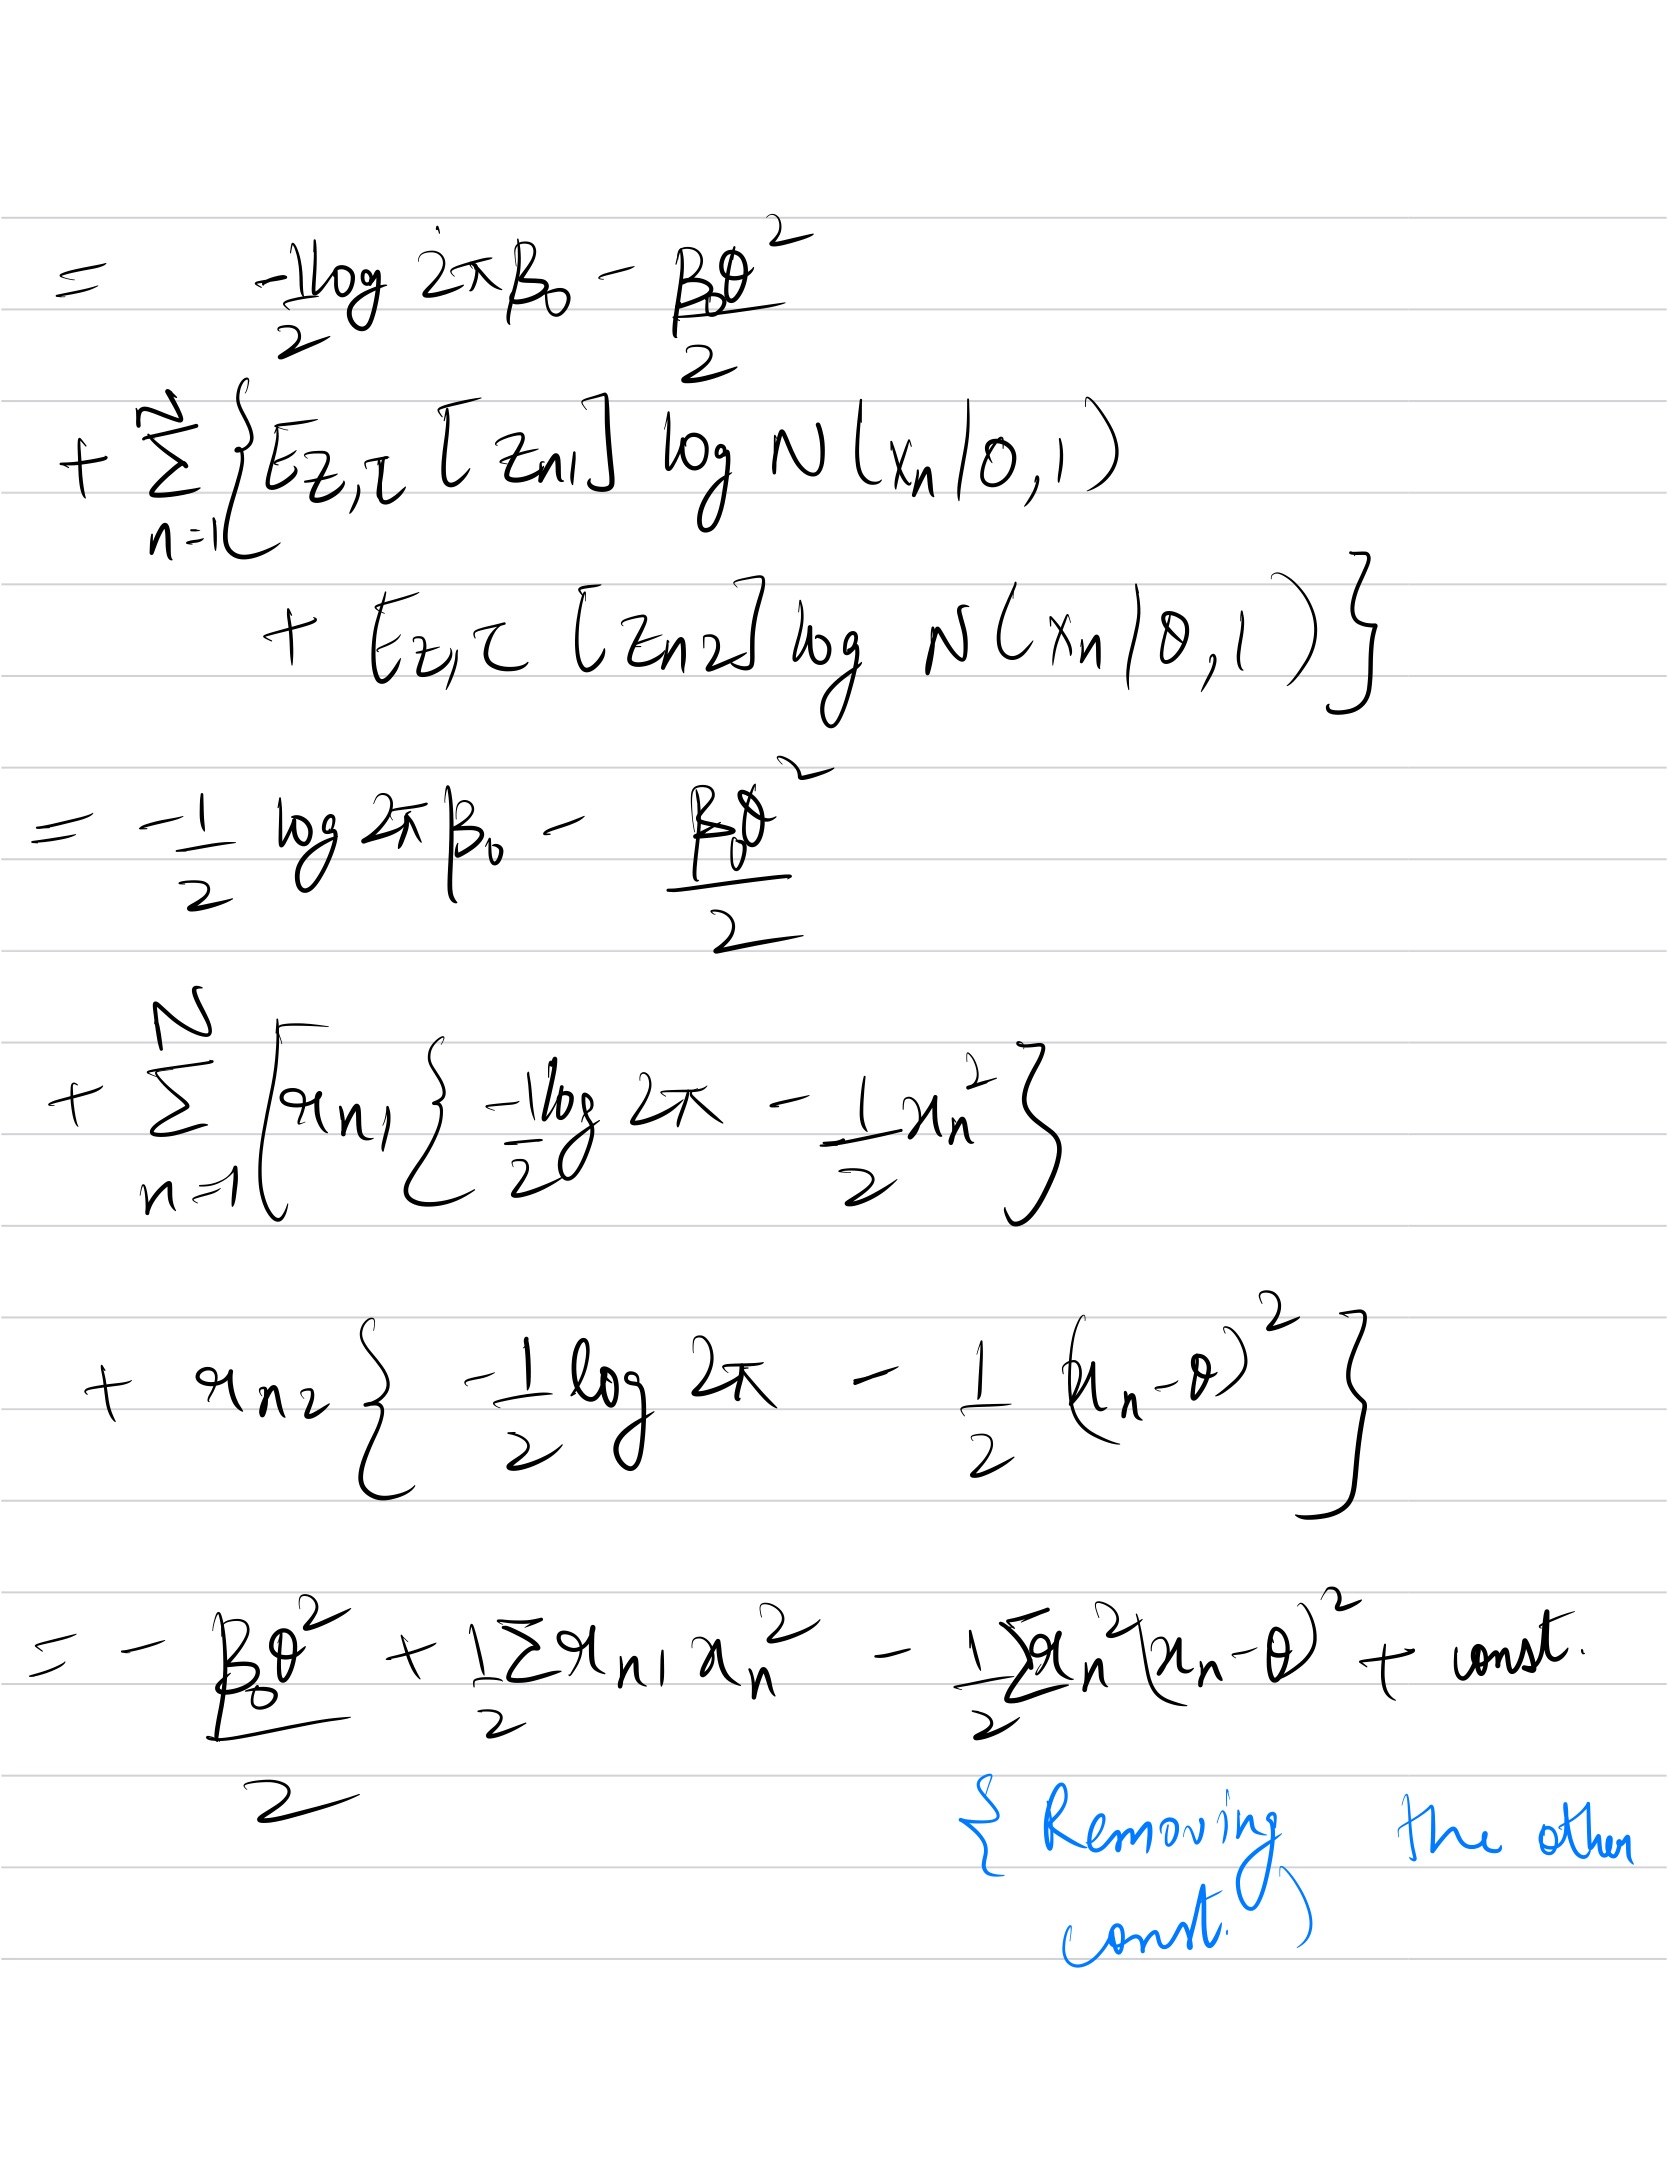 = -1/2 log 2πβ₀ - β₀θ²/2
+ Σ_{n=1}^{N} { E_{Z,τ} [Z_{n1}] log N(x_n|0,1)
+ E_{Z,τ} [Z_{n2}] log N(x_n|θ,1) }
= -1/2 log 2πβ₀ - β₀θ²/2
+ Σ_{n=1}^{N} [ r_{n1} { -1/2 log 2π - 1/2 x_n² }
+ r_{n2} { -1/2 log 2π - 1/2 (x_n-θ)² }
= - β₀θ²/2 + 1/2 Σ r_{n1} x_n² - 1/2 Σ r_n² (x_n-θ)² + const.
{ Removing the other
const. )